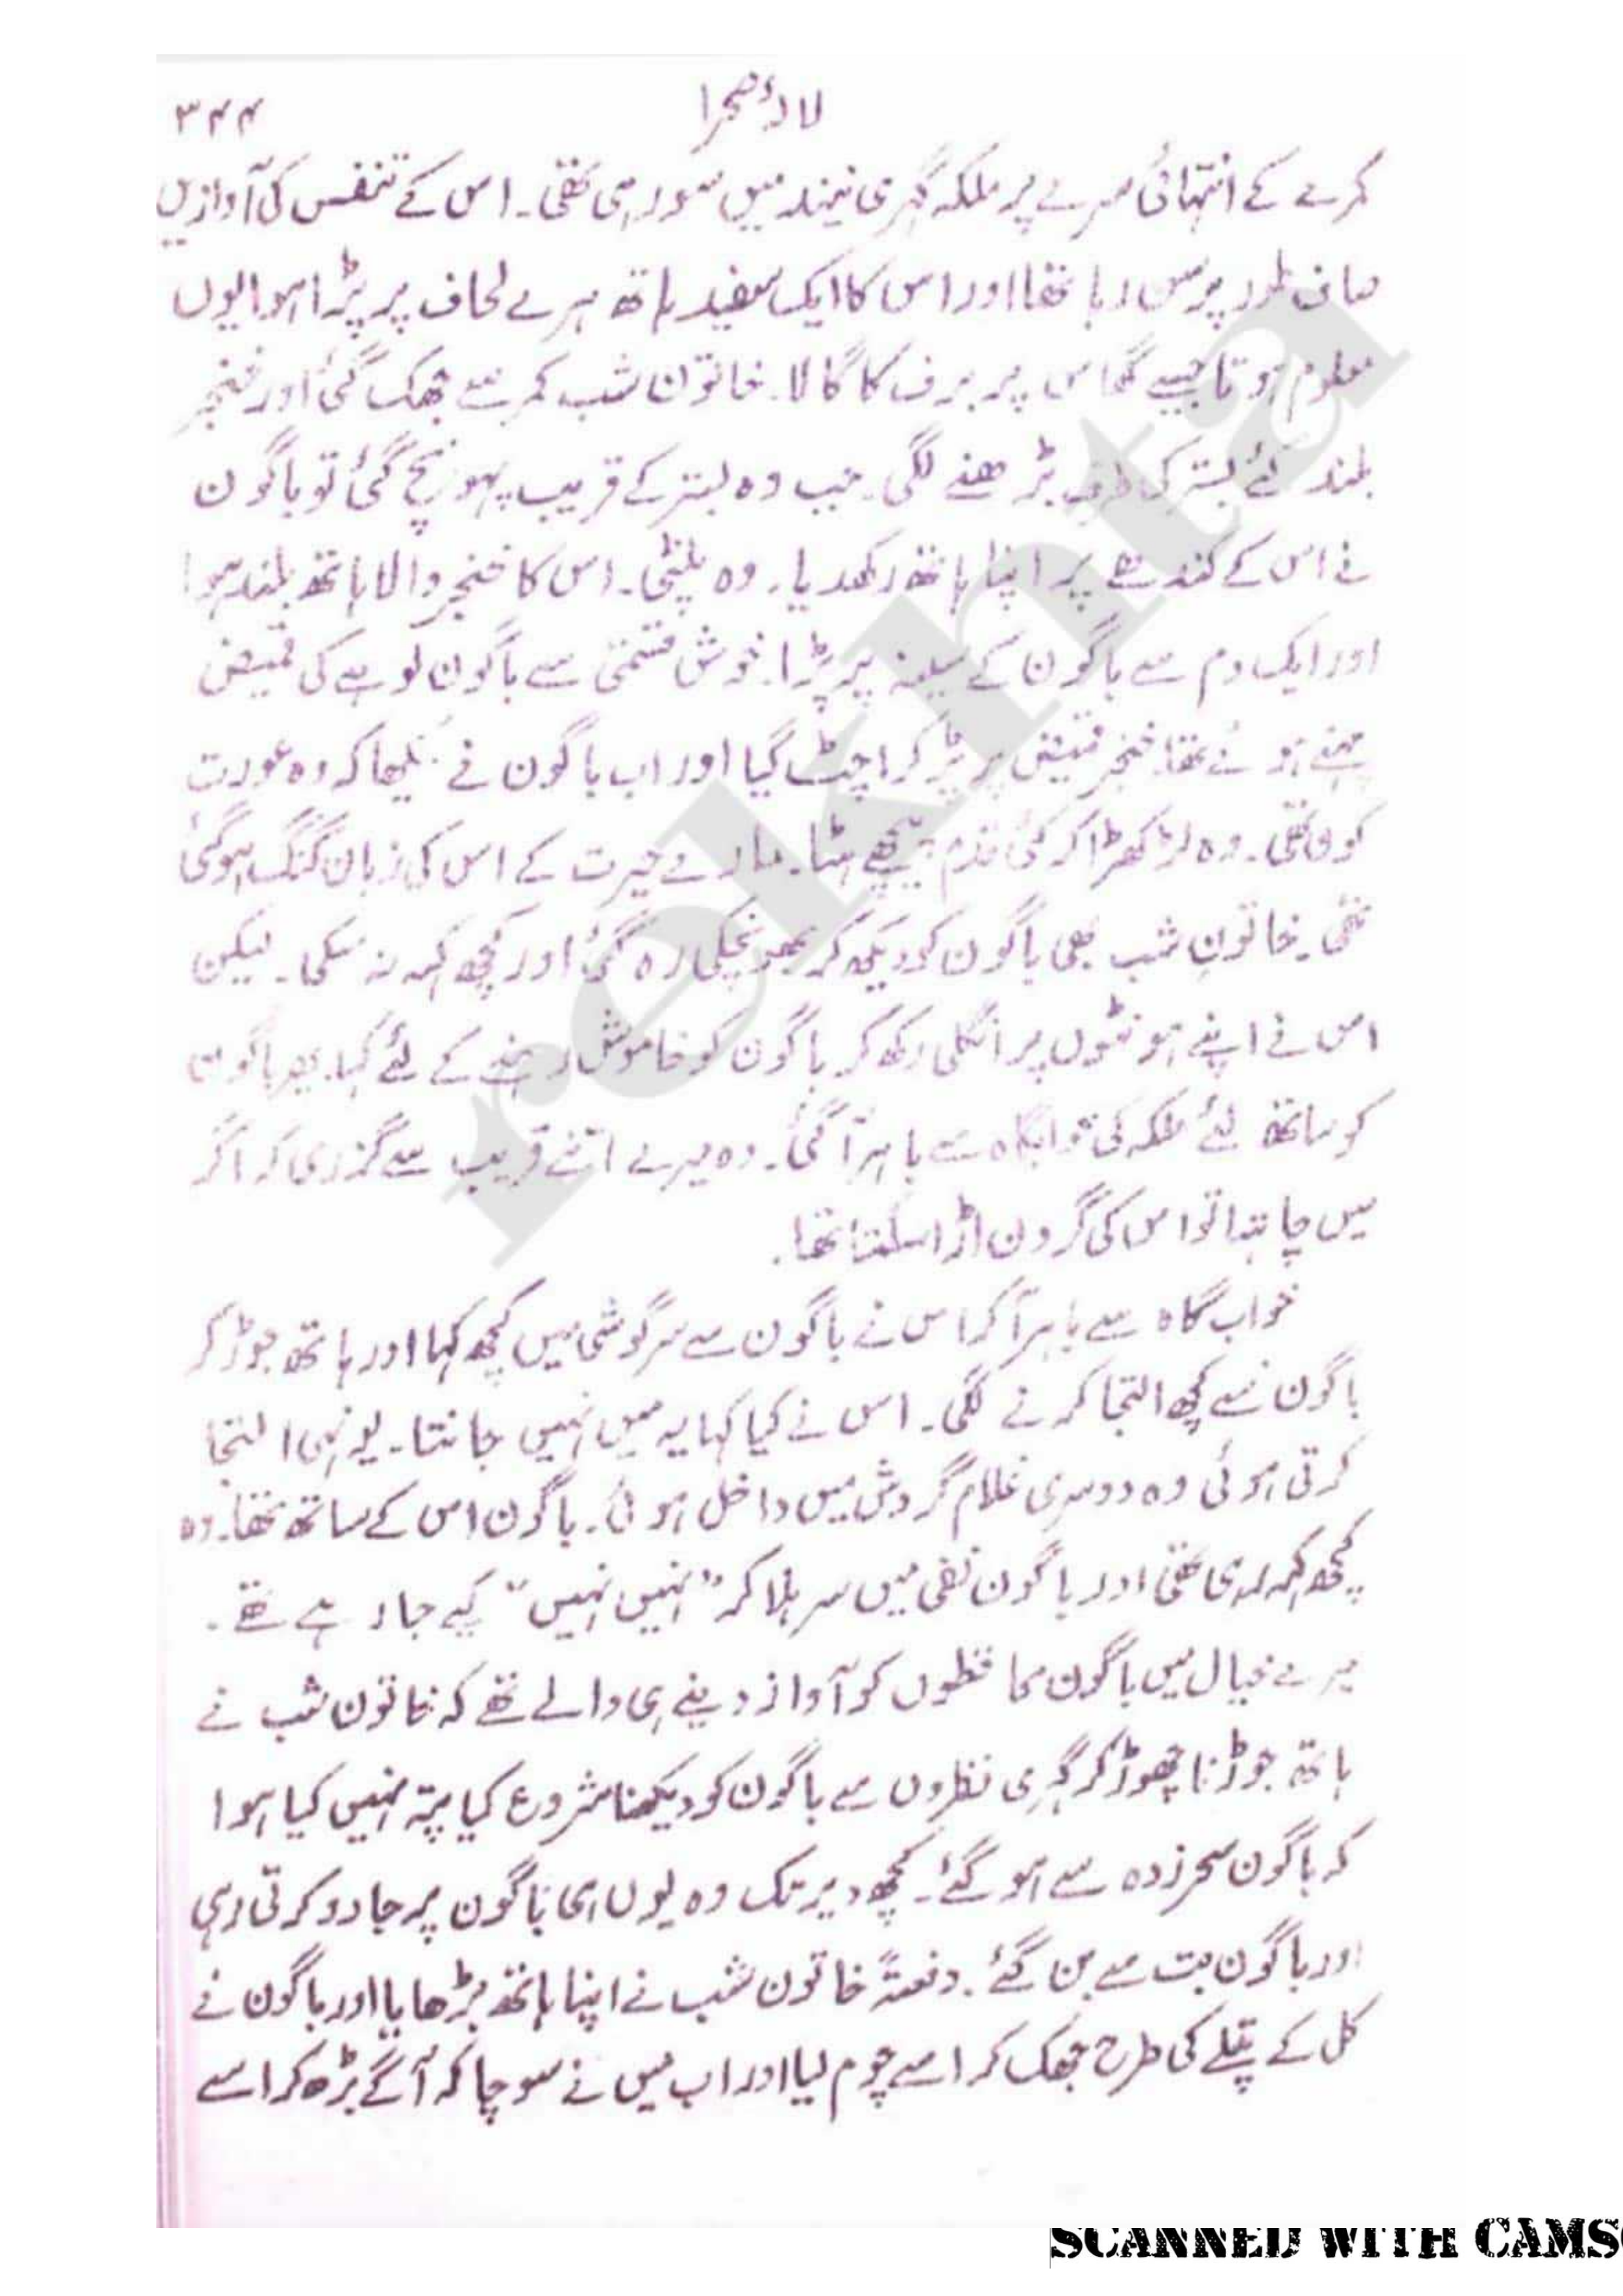 لالۂ صحرا
۳۴۴
کمرے کے انتہائی سرے پر ملکہ گہری نیند میں سو رہی تھی۔ اس کے تنفس کی آوازیں
صاف طور پر سن رہا تھا اور اس کا ایک سفید ہاتھ ہرے لحاف پر پڑا ہوا یوں
معلوم ہوتا جیسے گھاس پر برف کا گالا۔ خاتون شب کمر سے جھک گئی اور خنجر
بلند کئے بستر کی طرف بڑھنے لگی۔ جب وہ بستر کے قریب پہونچ گئی تو باگون
نے اس کے کندھے پر اپنا ہاتھ رکھدیا۔ وہ پلٹی۔ اس کا خنجر والا ہاتھ بلند ہوا
اور ایک دم سے باگون کے سینہ پر پڑا۔ خوش قسمتی سے باگون لوہے کی قمیض
پہنے ہوئے تھا۔ خنجر قمیض پر پڑ کر اچٹ گیا اور اب باگون نے دیکھا کہ وہ عورت
کون تھی۔ وہ لڑکھڑا کر کئی قدم پیچھے ہٹا۔ مارے حیرت کے اس کی زبان گنگ ہو گئی
تھی۔ خاتونِ شب بھی باگون کو دیکھ کر بھونچکی رہ گئی اور کچھ کہہ نہ سکی۔ لیکن
اس نے اپنے ہونٹوں پر انگلی رکھ کر باگون کو خاموش رہنے کے لئے کہا۔ پھر باگون
کو ساتھ لئے ملکہ کی خوابگاہ سے باہر آ گئی۔ وہ میرے اتنے قریب سے گزری کہ اگر
میں چاہتا تو اس کی گردن اڑا سکتا تھا۔
خواب گاہ سے باہر آ کر اس نے باگون سے سرگوشی میں کچھ کہا اور ہاتھ جوڑ کر
باگون سے کچھ التجا کرنے لگی۔ اس نے کیا کہا یہ میں نہیں جانتا۔ یونہی التجا
کرتی ہوئی وہ دوسری غلام گردش میں داخل ہوئی۔ باگون اس کے ساتھ تھا۔ وہ
کچھ کہہ رہی تھی اور باگون نفی میں سر ہلا کر ”نہیں نہیں“ کہے جا رہے تھے۔
میرے خیال میں باگون محافظوں کو آواز دینے ہی والے تھے کہ خاتون شب نے
ہاتھ جوڑنا چھوڑ کر گہری نظروں سے باگون کو دیکھنا شروع کیا پتہ نہیں کیا ہوا
کہ باگون سحرزدہ سے ہو گئے۔ کچھ دیر تک وہ یوں ہی باگون پر جادو کرتی رہی
اور باگون بت سے بن گئے۔ دفعتہً خاتون شب نے اپنا ہاتھ بڑھایا اور باگون نے
کل کے پتلے کی طرح جھک کر اسے چوم لیا اور اب میں نے سوچا کہ آگے بڑھ کر اسے
rekhta
SCANNED WITH CAMS